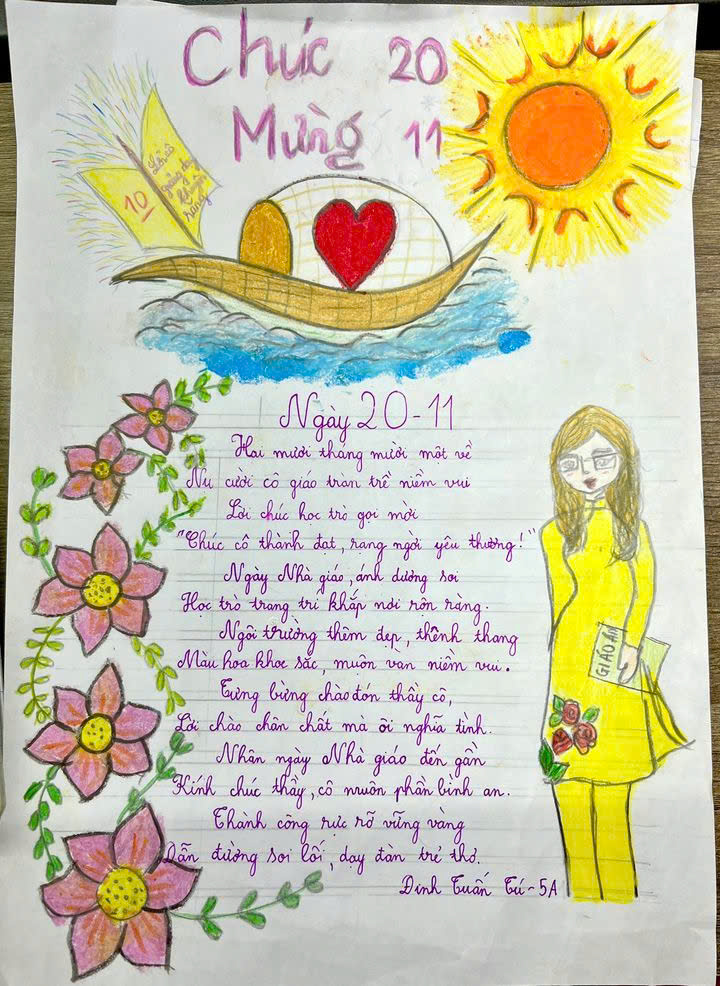 Chúc 20
Mừng 11
10
Ngày 20-11
Hai mươi tháng mười một về
Nụ cười cô giáo tràn trề niềm vui
Lời chúc học trò gọi mời
"Chúc cô thành đạt, rạng ngời yêu thương!"
Ngày Nhà giáo, ánh dương soi
Học trò trang trí khắp nơi rộn ràng.
Ngôi trường thêm đẹp, thênh thang
Màu hoa khoe sắc, muôn vàn niềm vui.
Tưng bừng chào đón thầy cô,
Lời chào chân chất mà ôi nghĩa tình.
Nhân ngày Nhà giáo đến gần
Kính chúc thầy, cô muôn phần bình an.
Thành công rực rỡ vững vàng
Dẫn đường soi lối, dạy đàn trẻ thơ.
Đinh Tuấn Tú - 5A
GIÁO ÁN